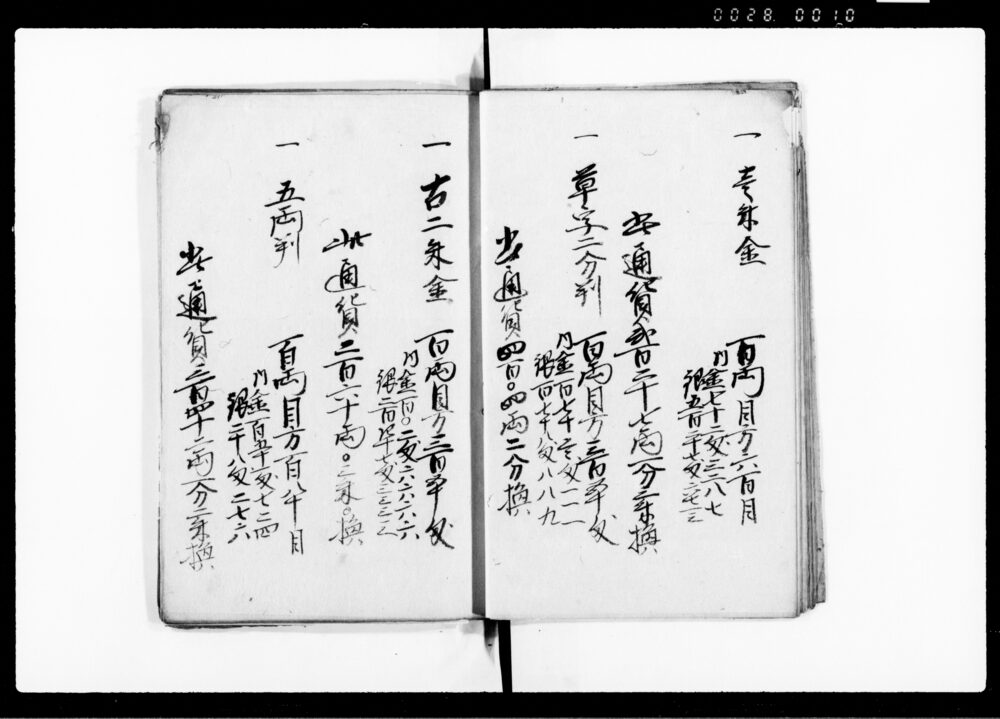 0028. 0010
一 壱朱金
百両目方六百目
内金七十二匁三三八七
此通貨弐百二十七両一分二朱換
一 草字二分判
百両目方三百五十匁
内金百七十一匁一一一
銀百七十八匁八八九
此通貨四百〇四両二分換
一 古二朱金
百両目方三百五十匁
内金百〇二匁六六六六六
此通貨二百六十両〇二朱〇換
一 五両判
百両目方百八十目
内金百五十一匁七二四
銀二十八匁二七六
此通貨三百四十二両一分二朱換